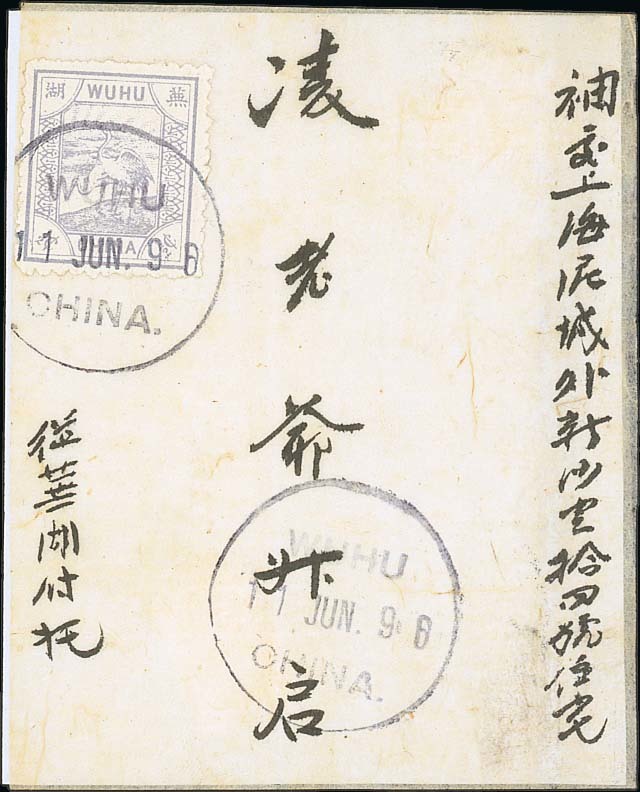 袖交上海泥城外新拾四號住宅
凌老爺升启
從蕪湖付托
湖 WUHU 蕪
WUHU
11 JUN. 96
CHINA.
WUHU
11 JUN. 96
CHINA.